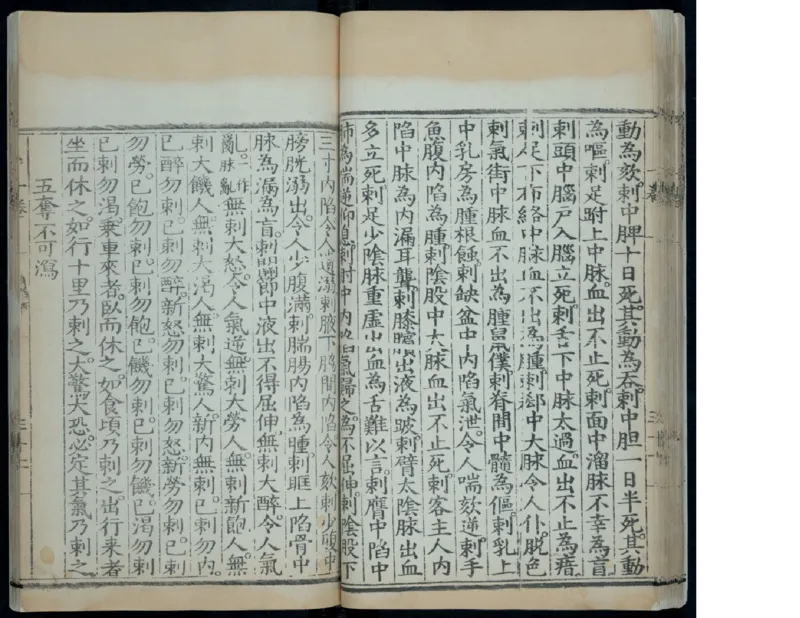 動為欬。刺中脾十日死。其動為吞。刺中胆一日半死。其動
為嘔。刺足跗上中脉。血出不止死。刺面中溜脉不幸為盲
刺頭中腦户入腦立死。刺舌下中脉太過。血出不止為瘖
刺足下布絡中脉血不出為腫。刺郄中大脉令人仆。脱色
刺氣街中脉血不出為腫鼠僕。刺脊間中髓為傴。刺乳上
中乳房為腫根蝕。刺缺盆中内陷氣泄。令人喘欬逆。刺手
魚腹内陷為腫。刺陰股中大脉血出不止死。刺客主人内
陷中脉為内漏耳聾。刺膝臏出液為跛。刺臂太陰脉出血
多立死。刺足少陰脉重虛出血為舌難以言。刺膺中陷中
肺為喘逆仰息。刺肘中内陷氣歸之。為不屈伸。刺陰股下
三寸内陷令人遺溺。刺腋下脇間内陷令人欬。刺少腹中
膀胱溺出。令人少腹滿。刺腨腸内陷為腫。刺眶上陷骨中
脉為漏為盲。刺關節中液出不得屈伸。無刺大醉。令人氣
亂。一作脉亂無刺大怒。令人氣逆。無刺大勞人。無刺新飽人。無
刺大饑人。無刺大渴人。無刺大驚人。新内無刺。已刺勿内。
已醉勿刺。已刺勿醉。新怒勿刺。已刺勿怒。新勞勿刺。已刺
勿勞。已飽勿刺。已刺勿飽。已饑勿刺。已刺勿饑。已渴勿刺
已刺勿渴。乗車來者。臥而休之。如食頃乃刺之。出行来者
坐而休之。如行十里乃刺之。大驚大恐。必定其氣乃刺之
五奪不可瀉